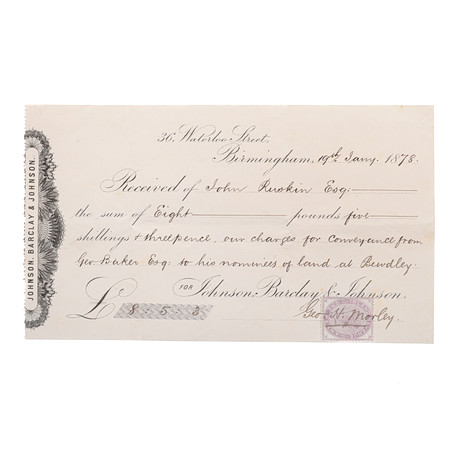 JOHNSON, BARCLAY & JOHNSON.
36, Waterloo Street,
Birmingham, 19th Jany. 1878.
Received of John Ruskin Esq:
the sum of Eight pounds five
shillings & threepence, our charges for Conveyance from
Geo. Baker Esq: to his nominees of land at Bewdley.
FOR Johnson, Barclay & Johnson.
£ 8-5-3
Geo H. Morley.